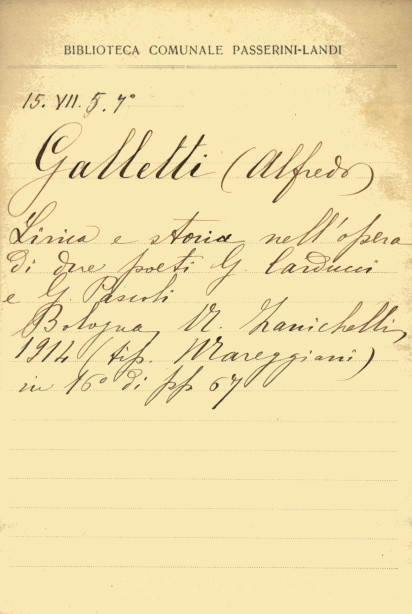 BIBLIOTECA COMUNALE PASSERINI-LANDI
15. VII. 5. 7°
Galletti (Alfredo)
Lirica e storia nell'opera
di due poeti G. Carducci
e G. Pascoli
Bologna, N. Zanichelli,
1914 (tip. Mareggiani)
in 16° di pp 67